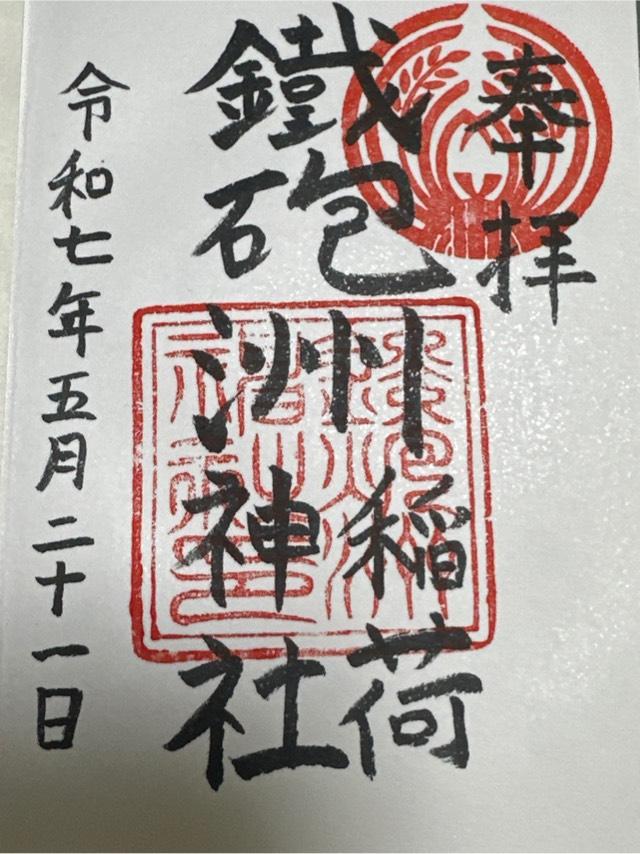 奉拝
鐵砲洲稲荷神社
令和七年五月二十一日